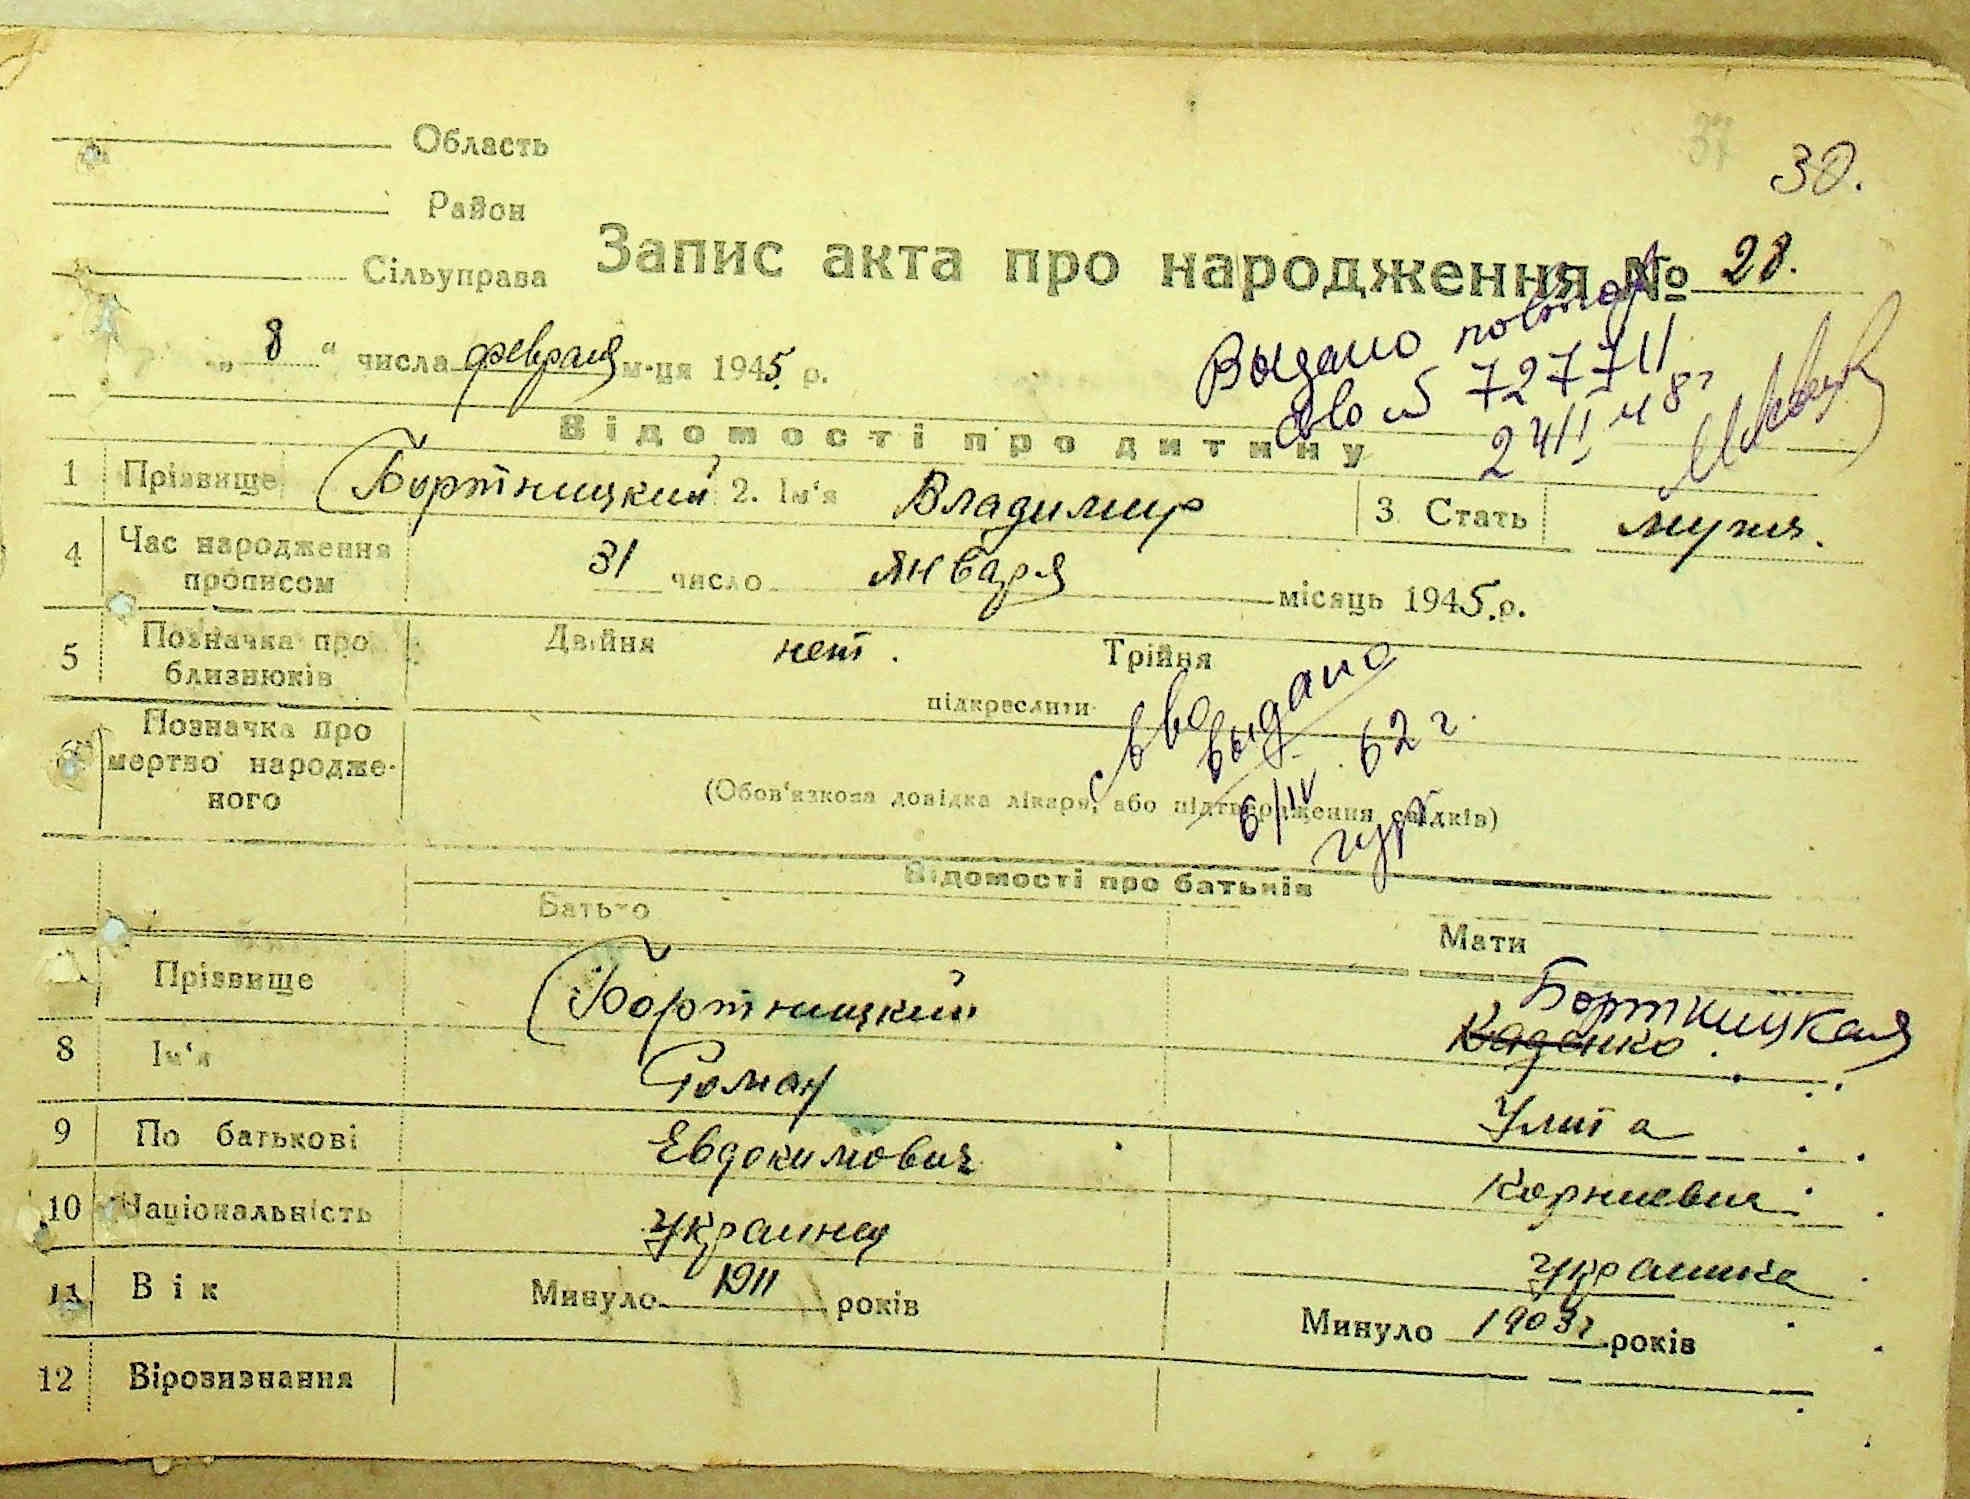 Область
37
30.
Район
Сільуправа
Запис акта про народження № 28.
„ 8 “ числа февраля м-ця 1945. р.
Выдано повторн
св-во № 727711
24/I 48 г
Відомості про дитину
1 Прізвище Бортницкий 2. Ім‘я Владимир 3 Стать мужч.
4 Час народження прописом 31 число января місяць 1945.р.
5 Позначка про близнюків Двійня нет. Трійня
підкреслити
св-во
выдано
6/IV 62 г.
6 Позначка про мертво народже-
ного
(Обов‘язкова довідка лікаря, або підтвердження свідків)
Відомості про батьків
Батько Мати
Прізвище Бортницкий Бортницкая
Каденко.
8 Ім‘я Роман Улита
9 По батькові Евдокимович Корниевна
10 Національність Украинец Украинка
11 Вік Минуло 1911 років Минуло 1903г років
12 Віровизнання